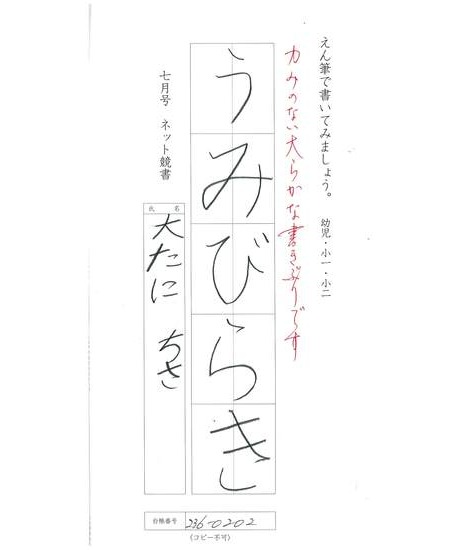 えん筆で書いてみましょう。 幼児・小一・小二
力みのない大らかな書きぶりです
うみびらき
七月号 ネット競書
氏名
大たに ちさ
台帳番号 236-0202
(コピー不可)